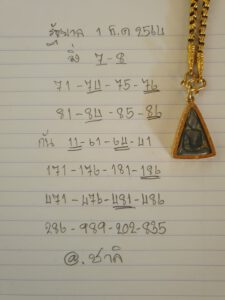 รัฐบาล 1 ธ.ค 2564
วิ่ง 7-8
71-74-75-76
81-84-85-86
กัน 11-61-64-41
171-176-181-186
471-476-481-486
286-989-202-835
@.ชาติ